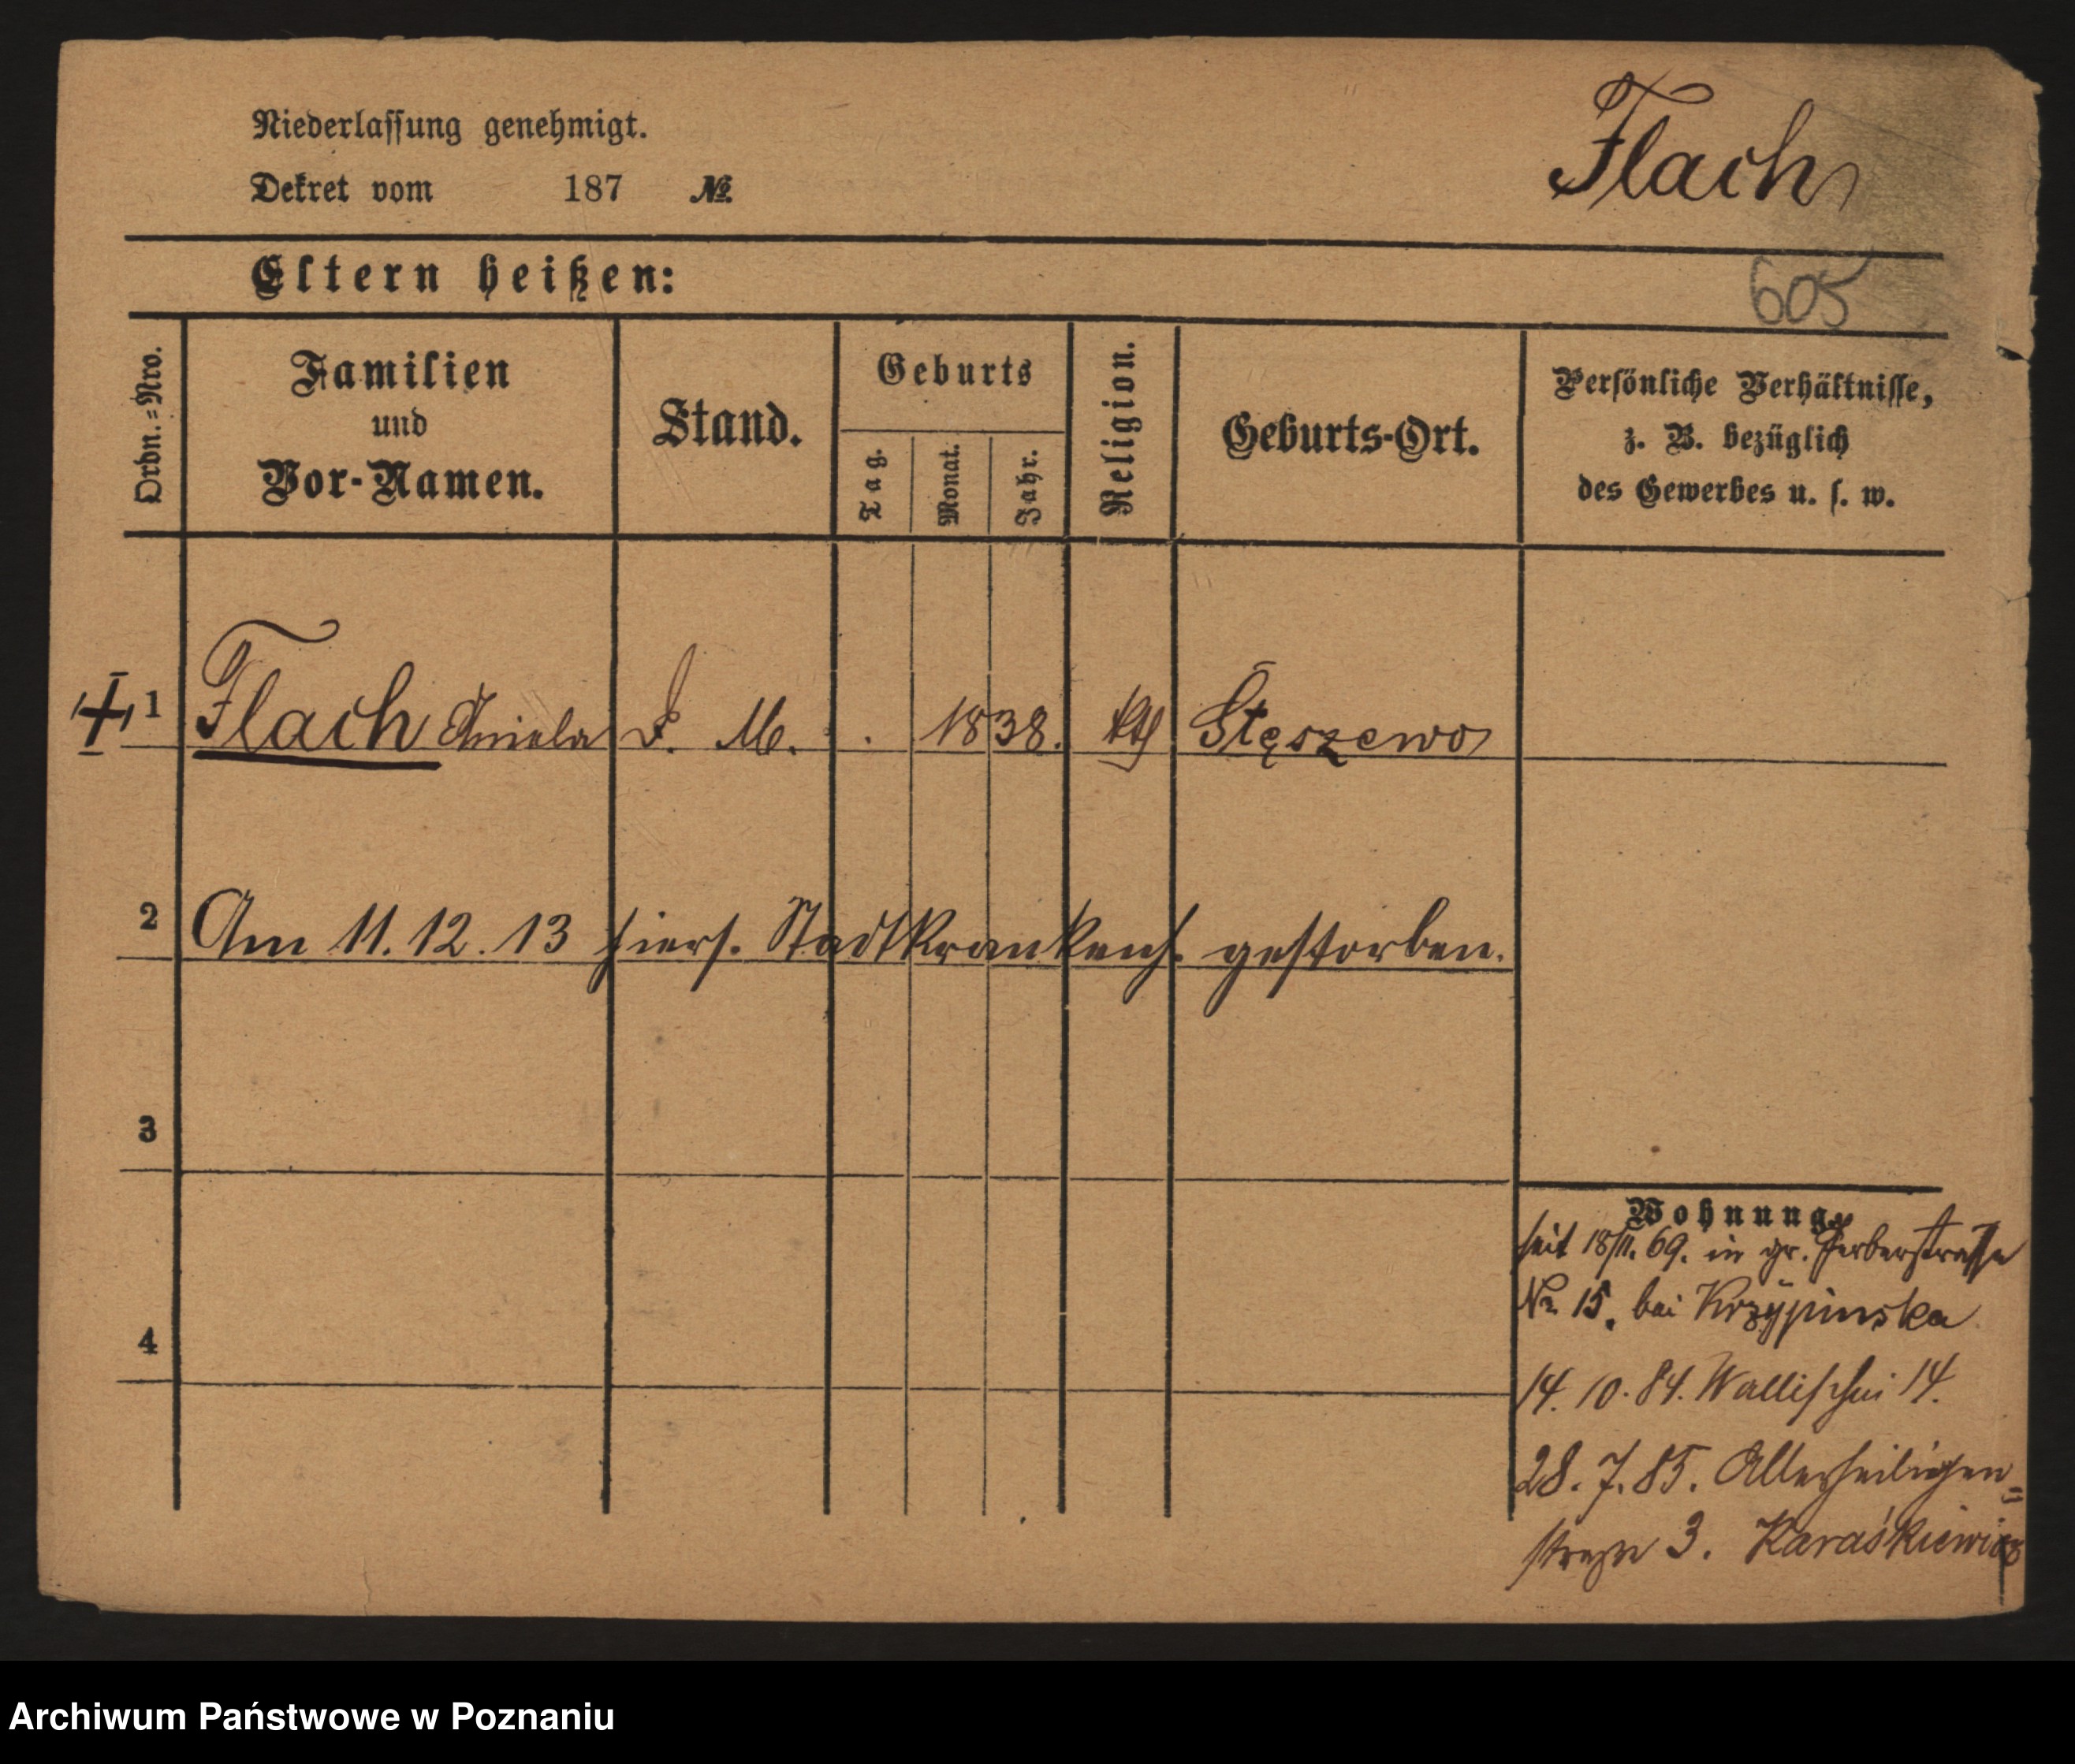 Niederlassung genehmigt.
Dekret vom 187 №
Flach
Eltern heißen:
605
Ordn.=Nro.
Familien
und
Vor-Namen.
Stand.
Geburts
Tag.
Monat.
Jahr.
Religion.
Geburts-Ort.
Persönliche Verhältnisse,
z. B. bezüglich
des Gewerbes u. s. w.
1 Flach Aniela D. M. 1838. kth Stęszewo
2 Am 11.12.13 hiers. Stadtkrankenh. gestorben.
3
4
Wohnung.
seit 18/11. 69. in gr. Gerberstrasse
No 15. bei Krzÿpinska
14. 10. 84. Wallischei 14.
28. 7. 85. Allerheiligen=
strasse 3. Karaśkiewicz
Archiwum Państwowe w Poznaniu